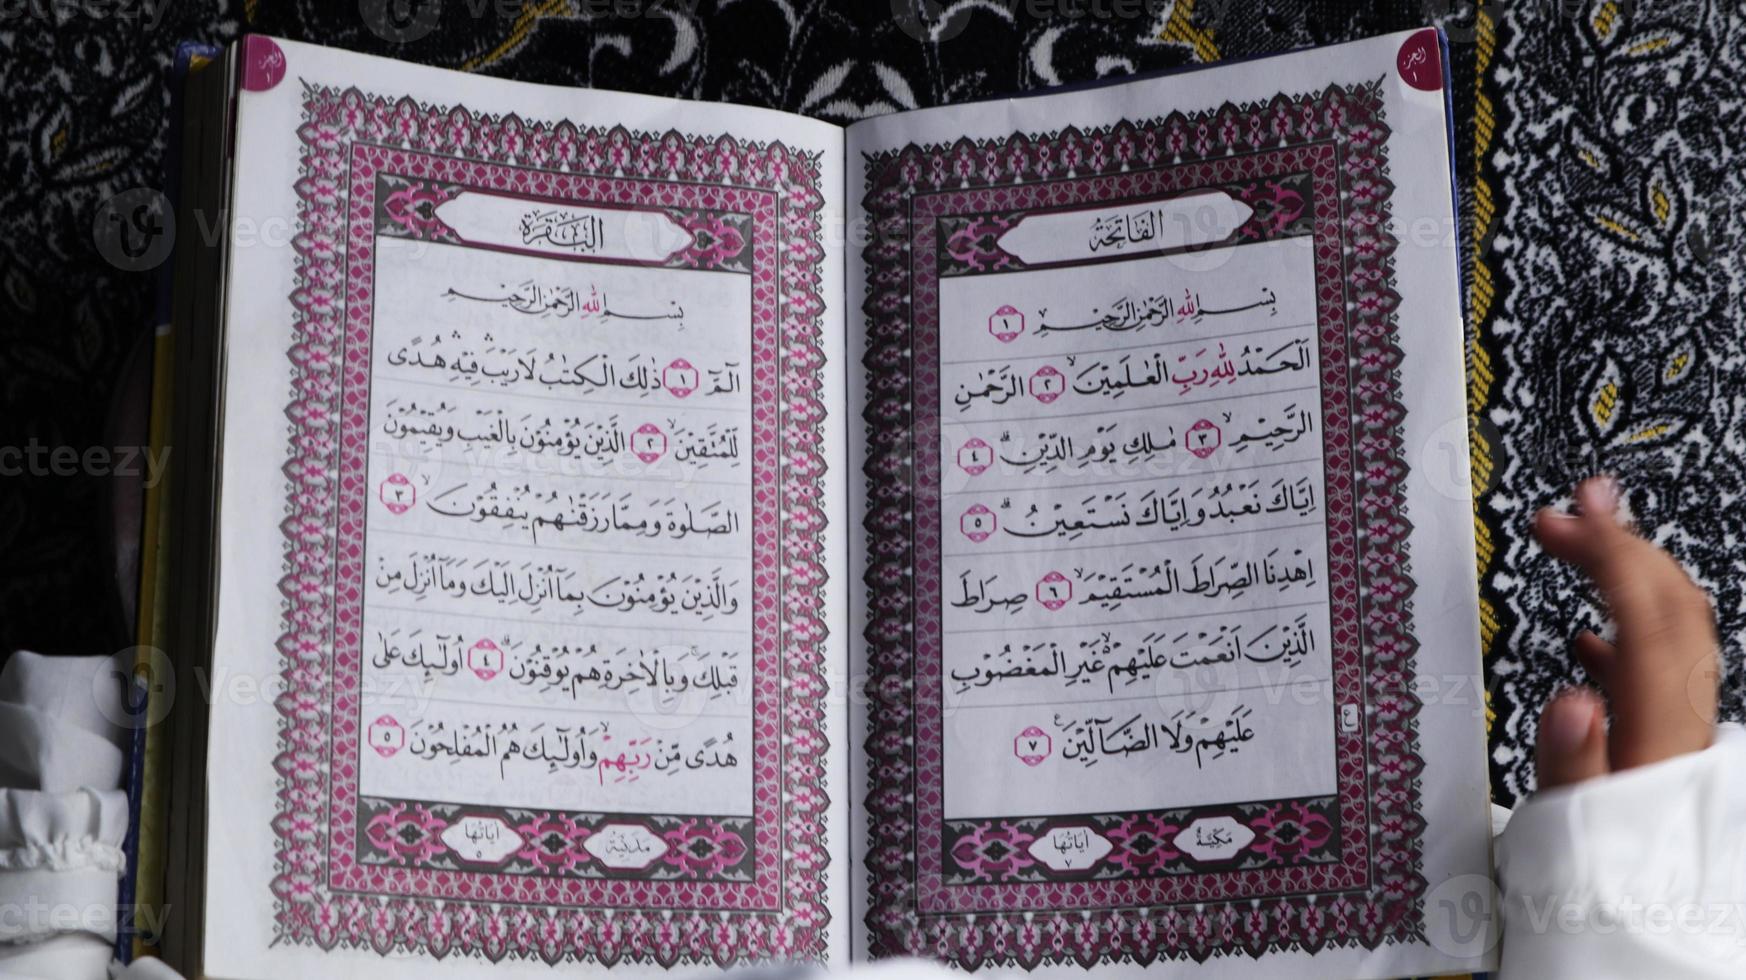 الجزء
١
الفَاتِحَةُ
بِسْمِ اللهِ الرَّحْمٰنِ الرَّحِيْمِ ١
اَلْحَمْدُ لِلهِ رَبِّ الْعٰلَمِيْنَۙ ٢ الرَّحْمٰنِ
الرَّحِيْمِۙ ٣ مٰلِكِ يَوْمِ الدِّيْنِۗ ٤
اِيَّاكَ نَعْبُدُ وَاِيَّاكَ نَسْتَعِيْنُۗ ٥
اِهْدِنَا الصِّرَاطَ الْمُسْتَقِيْمَۙ ٦ صِرَاطَ
الَّذِيْنَ اَنْعَمْتَ عَلَيْهِمْۙ غَيْرِ الْمَغْضُوْبِ
عَلَيْهِمْ وَلَا الضَّاۤلِّيْنَࣖ ٧
ع
مَكِّيَّةٌ
اٰيَاتُهَا
٧
الجزء
١
البَقَرَة
بِسْمِ اللهِ الرَّحْمٰنِ الرَّحِيْمِ
الۤمّۤ ١ ذٰلِكَ الْكِتٰبُ لَا رَيْبَۛ فِيْهِۛ هُدًى
لِّلْمُتَّقِيْنَۙ ٢ الَّذِيْنَ يُؤْمِنُوْنَ بِالْغَيْبِ وَيُقِيْمُوْنَ
الصَّلٰوةَ وَمِمَّا رَزَقْنٰهُمْ يُنْفِقُوْنَۙ ٣
وَالَّذِيْنَ يُؤْمِنُوْنَ بِمَآ اُنْزِلَ اِلَيْكَ وَمَآ اُنْزِلَ مِنْ
قَبْلِكَۚ وَبِالْاٰخِرَةِ هُمْ يُوْقِنُوْنَۗ ٤ اُولٰۤىِٕكَ عَلٰى
هُدًى مِّنْ رَّبِّهِمْۙ وَاُولٰۤىِٕكَ هُمُ الْمُفْلِحُوْنَ ٥
مَدَنِيَّة
اٰيَاتُهَا
٥
Vecteezy